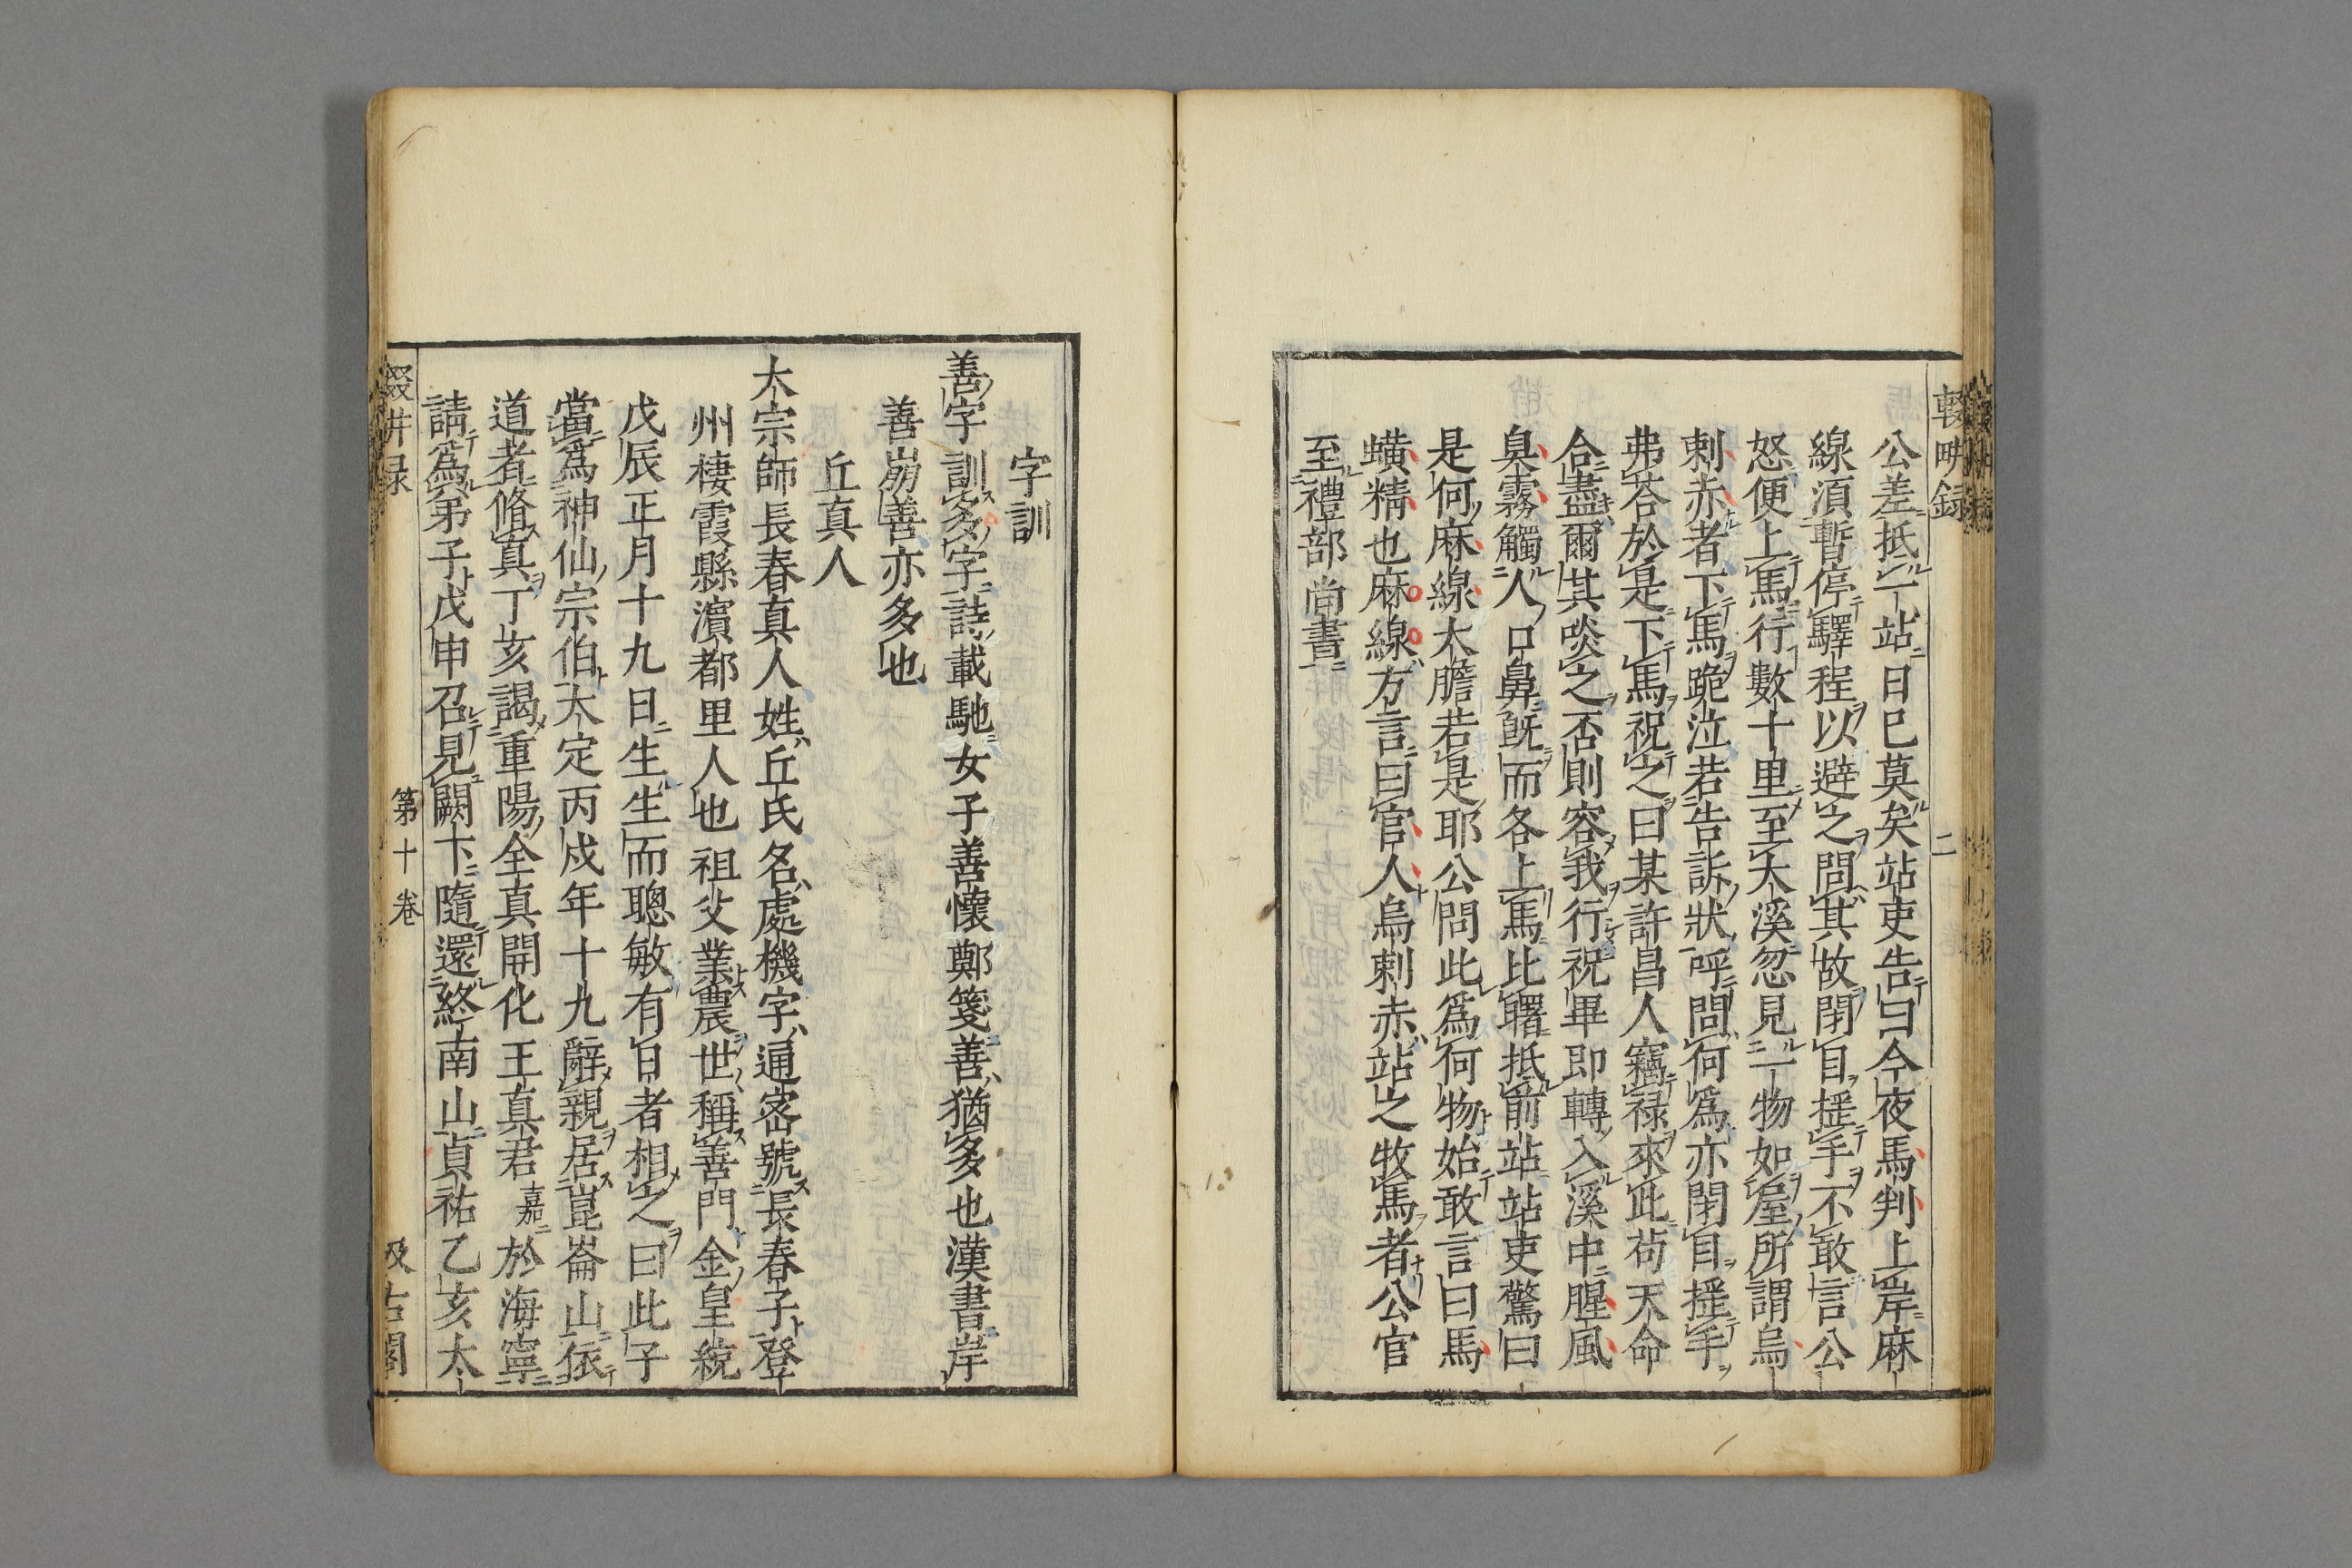 輟畊録
二
公差抵一站日巳莫矣站吏告曰今夜馬判上岸麻
線湏暫停驛程以避之問其故閉目揺手不敢言公
怒便上馬行數十里至大溪忽見一物如屋所謂烏
剌赤者下馬跪泣若告訴狀呼問何為亦閉目揺手
弗荅於是下馬祝之曰某許昌人竊禄來此茍天命
合盡爾其啖之否則容我行祝畢即轉入溪中腥風
臭霧觸人口鼻旣而各上馬比曙抵前站站吏驚曰
是何麻線大膽若是耶公問此爲何物始敢言曰馬
蟥精也麻線方言曰官人烏剌赤站之牧馬者公官
至禮部尚書
字訓
善字訓多字詩載馳女子善懷鄭箋善猶多也漢書岸
善崩善亦多也
丘真人
大宗師長春真人姓丘氏名處機字通宻號長春子登
州棲霞縣濵都里人也祖父業農世稱善門金皇統
戊辰正月十九日生生而聰敏有日者相之曰此子
當爲神仙宗伯大定丙戍年十九辭親居崑崙山依
道者脩真丁亥謁重陽全真開化王真君嘉於海寧
請爲弟子戊申召見闕下隨還終南山貞祐乙亥太
輟畊录
第十卷
汲古閣